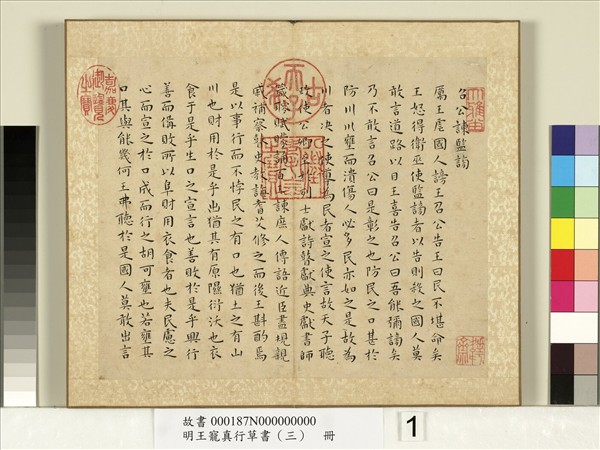 召公諫監謗
厲王虐國人謗王召公告王曰民不堪命矣
王怒得衛巫使監謗者以告則殺之國人莫
敢言道路以目王喜告召公曰吾能弭謗矣
乃不敢言召公曰是彰之也防民之口甚於
防川川壅而潰傷人必多民亦如之是故為
川者决之使導為民者宣之使言故天子聽
政使公卿至於列士獻詩瞽獻典史獻書師
箴瞍賦矇誦百工諫庶人傳語近臣盡規親
戚補察瞽史教誨耆艾修之而後王斟酌焉
是以事行而不悖民之有口也猶土之有山
川也財用於是乎出猶其有原隰衍沃也衣
食于是乎生口之宣言也善敗於是乎興行
善而備敗所以阜財用衣食者也夫民慮之
心而宣之於口成而行之胡可壅也若壅其
口其與能幾何王弗聽於是國人莫敢出言
嘉慶御覽之寶
故書 000187N000000000
明王寵真行草書（三） 冊
1